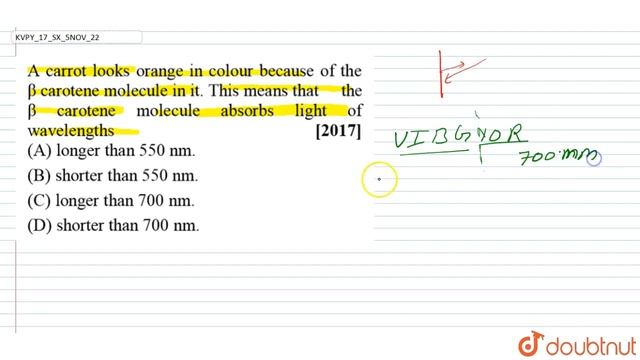 KVPY_17_SX_5NOV_22
A carrot looks orange in colour because of the
β carotene molecule in it. This means that the
β carotene molecule absorbs light of
wavelengths [2017]
(A) longer than 550 nm.
(B) shorter than 550 nm.
(C) longer than 700 nm.
(D) shorter than 700 nm.
VIBGYOR
700 nm
doubtnut